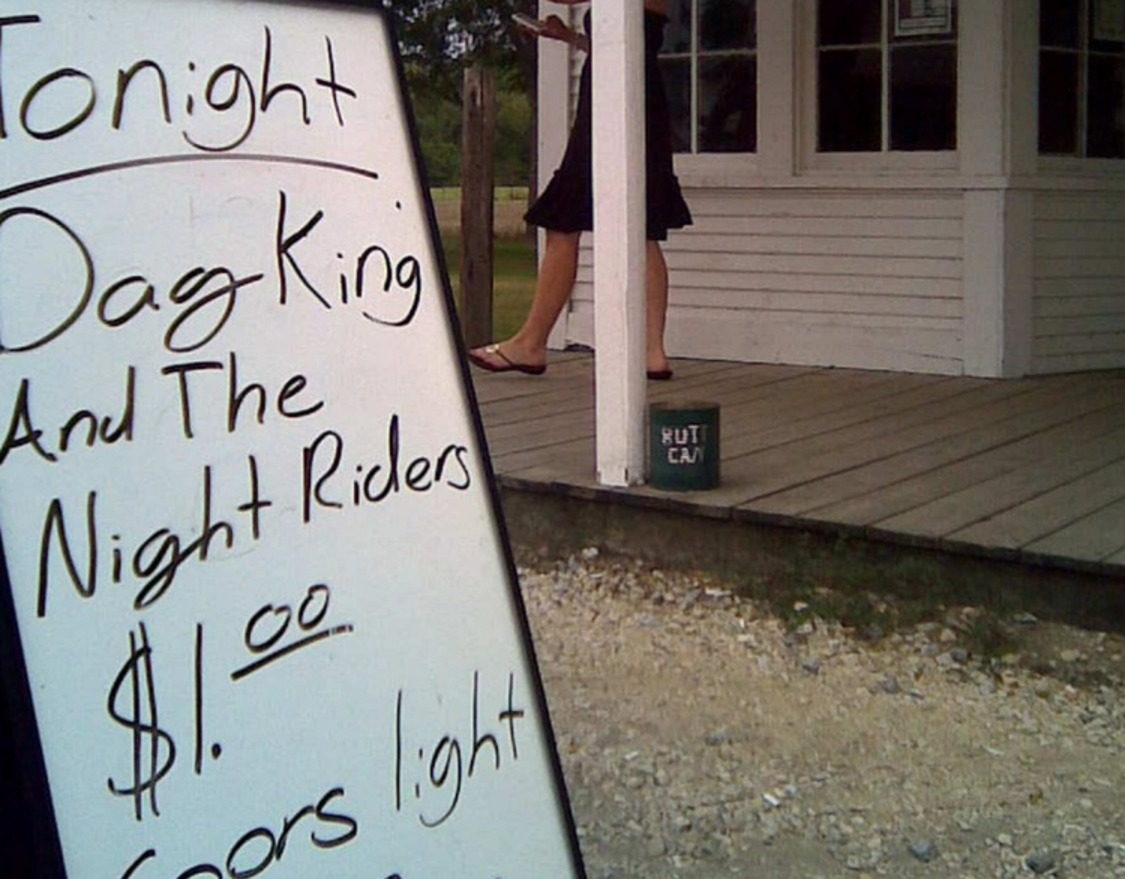 Tonight
Dag King
And The
Night Riders
$1.00
Coors light
BUTT
CAN